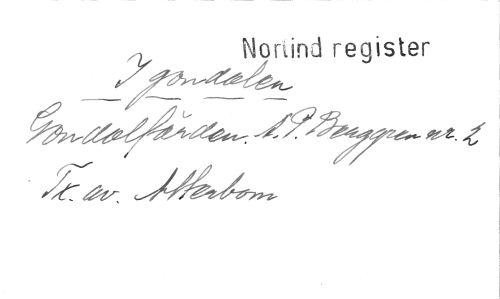 Norlind register
I gondolen
Gondolfärden. A. P. Berggren nr. 2
Tx. av. Atterbom